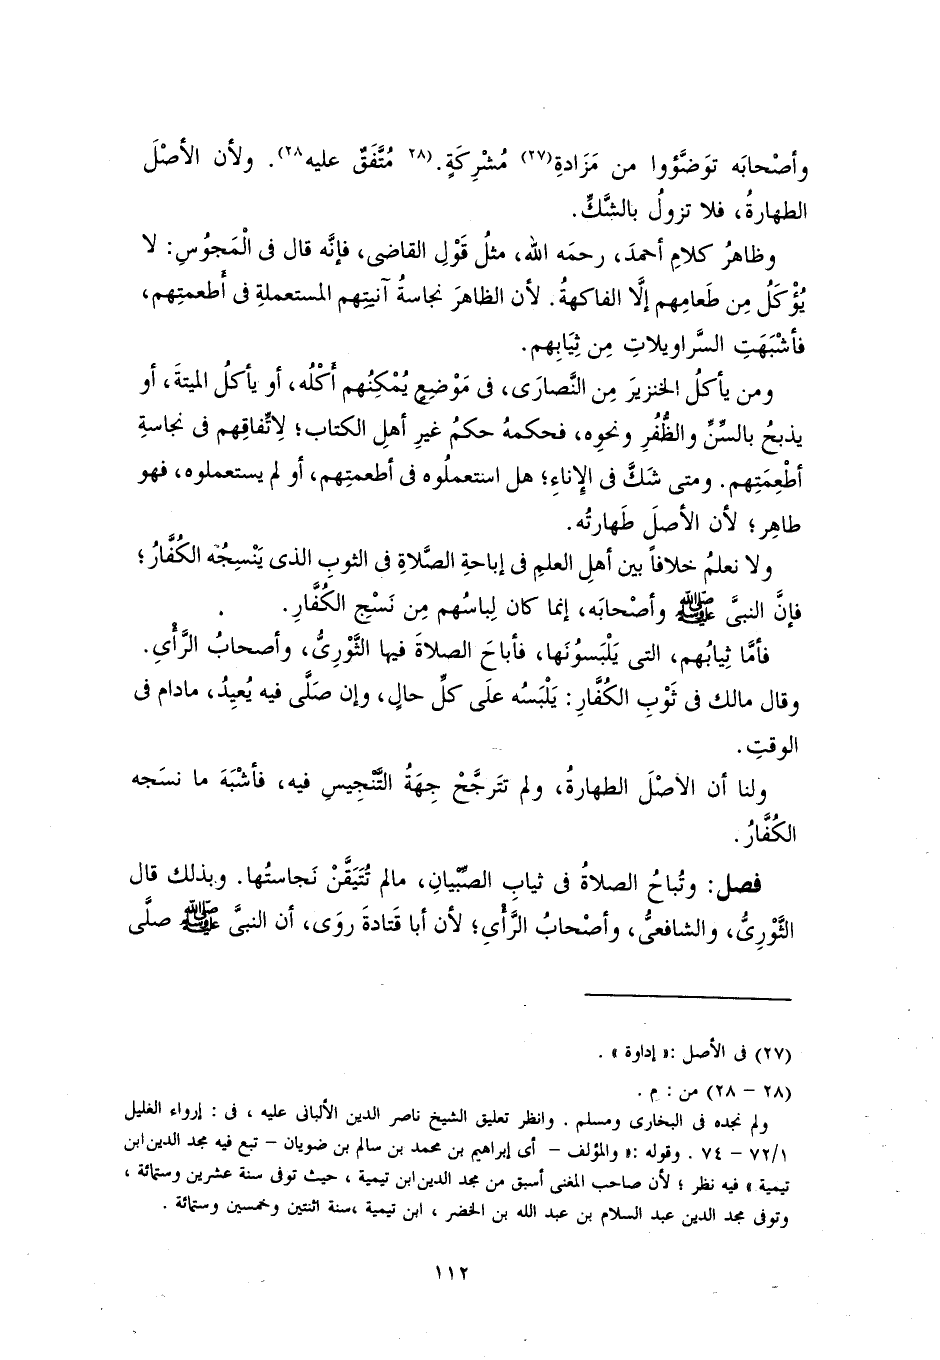 وأصْحابَه توَضَّؤوا من مَزَادةِ(٢٧) مُشْرِكَةٍ.(٢٨ مُتَّفَقٌ عليه٢٨). ولأن الأصْلَ
الطهارةُ، فلا تزولُ بالشَّكِّ.
وظاهرُ كلامِ أحمدَ، رحمَه الله، مثلُ قَوْلِ القاضى، فإنَّه قال فى الْمَجوُسِ: لا
يُؤْكَلُ مِن طَعامِهم إلَّا الفاكهةُ. لأن الظاهرَ نجاسةُ آنيتِهم المستعملةِ فى أطعمتِهم،
فأشْبَهَتِ السَّراويلاتِ مِن ثِيَابِهم.
ومن يأكلُ الخنزيرَ مِن النَّصارَى، فى مَوْضِعٍ يُمْكِنُهم أَكْلُه، أو يأكلُ الميتةَ، أو
يذبحُ بالسِّنِّ والظُّفُرِ ونحوِه، فحكمهُ حكمُ غيرِ أهلِ الكتاب؛ لِاتِّفاقِهم فى نجاسةِ
أطْعِمَتِهم. ومتى شَكَّ فى الإناءِ؛ هل استعملُوه فى أطعمتِهم، أو لم يستعملوه، فهو
طاهِر؛ لأن الأصلَ طَهارتُه.
ولا نعلمُ خلافاً بين أهلِ العلمِ فى إباحةِ الصَّلاةِ فى الثوبِ الذى يَنْسِجُه الكُفَّارُ؛
فإنَّ النبىَّ ﷺ وأصْحابَه، إنما كان لِباسُهم مِن نَسْجِ الكُفَّارِ.
فأمَّا ثِيابُهم، التى يَلْبَسوُنَها، فأباحَ الصلاةَ فيها الثَّوْرِىُّ، وأصحابُ الرَّأْىِ.
وقال مالك فى ثَوْبِ الكُفَّارِ: يَلْبَسُه علَى كلِّ حالٍ، وإن صَلَّى فيه يُعيِدُ، مادام فى
الوقتِ.
ولنا أن الأصْلَ الطهارةُ، ولم تتَرجَّحْ جِهَةُ التَّنْجِيسِ فيه، فأشْبَهَ ما نسَجه
الكُفَّارُ.
فصل: وتُباحُ الصلاةُ فى ثيابِ الصّبْيانِ، مالم تُتَيَقَّنْ نَجاستُها. وبذلك قال
الثَّوْرِىُّ، والشافعىُّ، وأصْحابُ الرَّأْىِ؛ لأن أبا قَتادةَ روَى، أن النبىَّ ﷺ صلَّى
(٢٧) فى الأصل: « إداوة » .
(٢٨ – ٢٨) من : م .
ولم نجده فى البخارى ومسلم . وانظر تعليق الشيخ ناصر الدين الألبانى عليه ، فى : إرواء الغليل
٧٢/١ – ٧٤ . وقوله : « والمؤلف – أى إبراهيم بن محمد بن سالم بن ضويان – تبع فيه مجد الدين ابن
تيمية » فيه نظر ؛ لأن صاحب المغنى أسبق من مجد الدين ابن تيمية ، حيث توفى سنة عشرين وستمائة ،
وتوفى مجد الدين عبد السلام بن عبد الله بن الخضر ، ابن تيمية ،سنة اثنتين وخمسين وستمائة .
١١٢